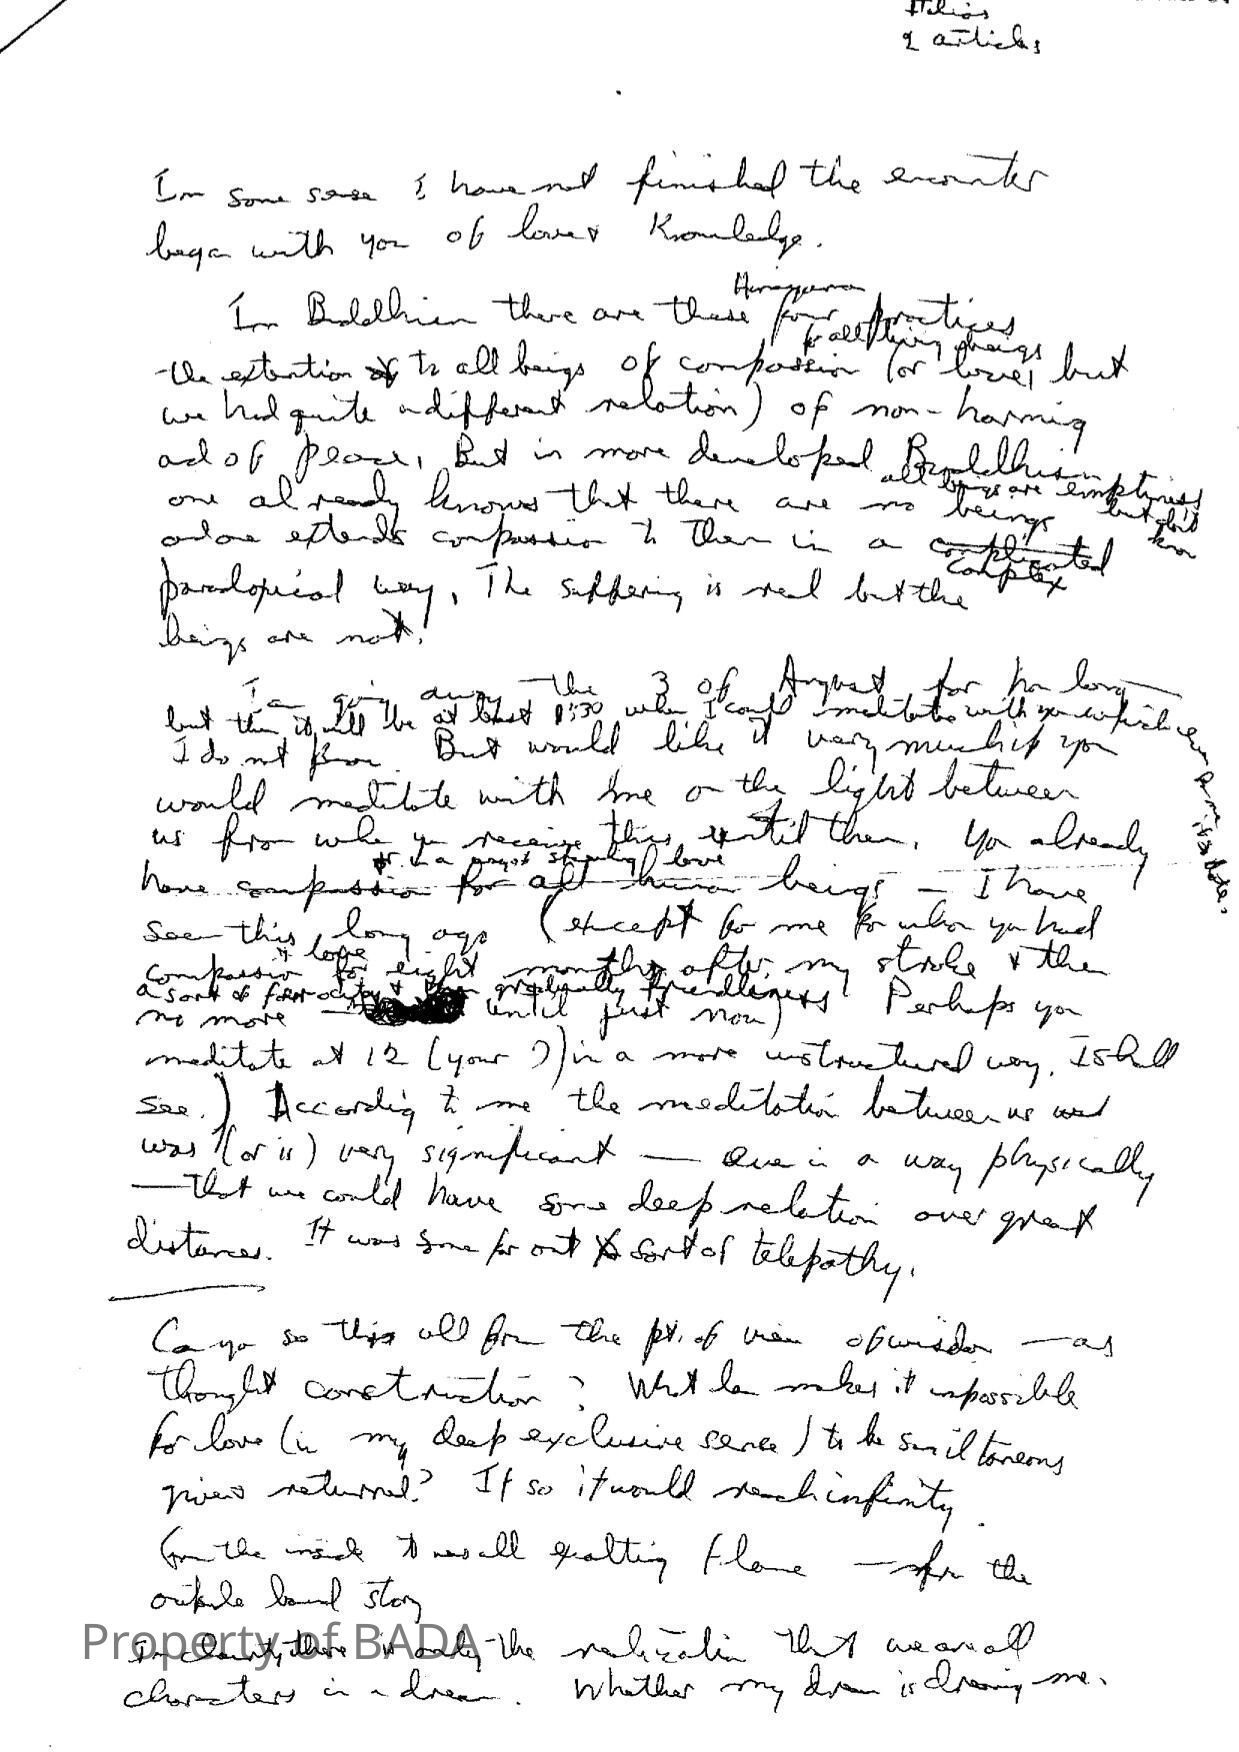 2 articles
In some sense I have not finished the encounter
began with you of love & Knowledge.
Hinayana
In Buddhism there are these four practices
for all living beings
the extention to all beings of compassion (or love, but
we had quite a different relation) of non-harming
and of peace. But in more developed Buddhism
all beings are emptyness
one already knows that there are no beings but don't know
and one extends compassion to them in a complicated
complex
paradoxical way. The suffering is real but the
beings are not!
I am going away the 3 of August for how long
but then it will be at least 9:30 when I could meditate with you whichever
I do not know. But would like it very much if you
would meditate with me on the light between
us from when you receive this until then. You already
or in a way steadily love
have compassion for all human beings — I have
seen this long ago (except for me for whom you had
& love
compassion for eight months after my stroke & then
a sort of ferocity & then gradually friendliness
no more — until just now) Perhaps you
meditate at 12 (your ?) in a more unstructured way. I shall
see.) According to me the meditation between us
was (or is) very significant — even in a way physically
— that we could have some deep relation over great
distances. It was some far out sort of telepathy.
Can you see this all from the pt. of view of wisdom — as
thought construction? What makes it impossible
for love (in my deep exclusive sense) to be simultaneous
given & returned? If so it would reach infinity.
From the inside it was all exalting flame — from the
outside banal story
In clarity there is only the realization that we are all
characters in a dream. Whether my dream is dreaming me.
Property of BADA